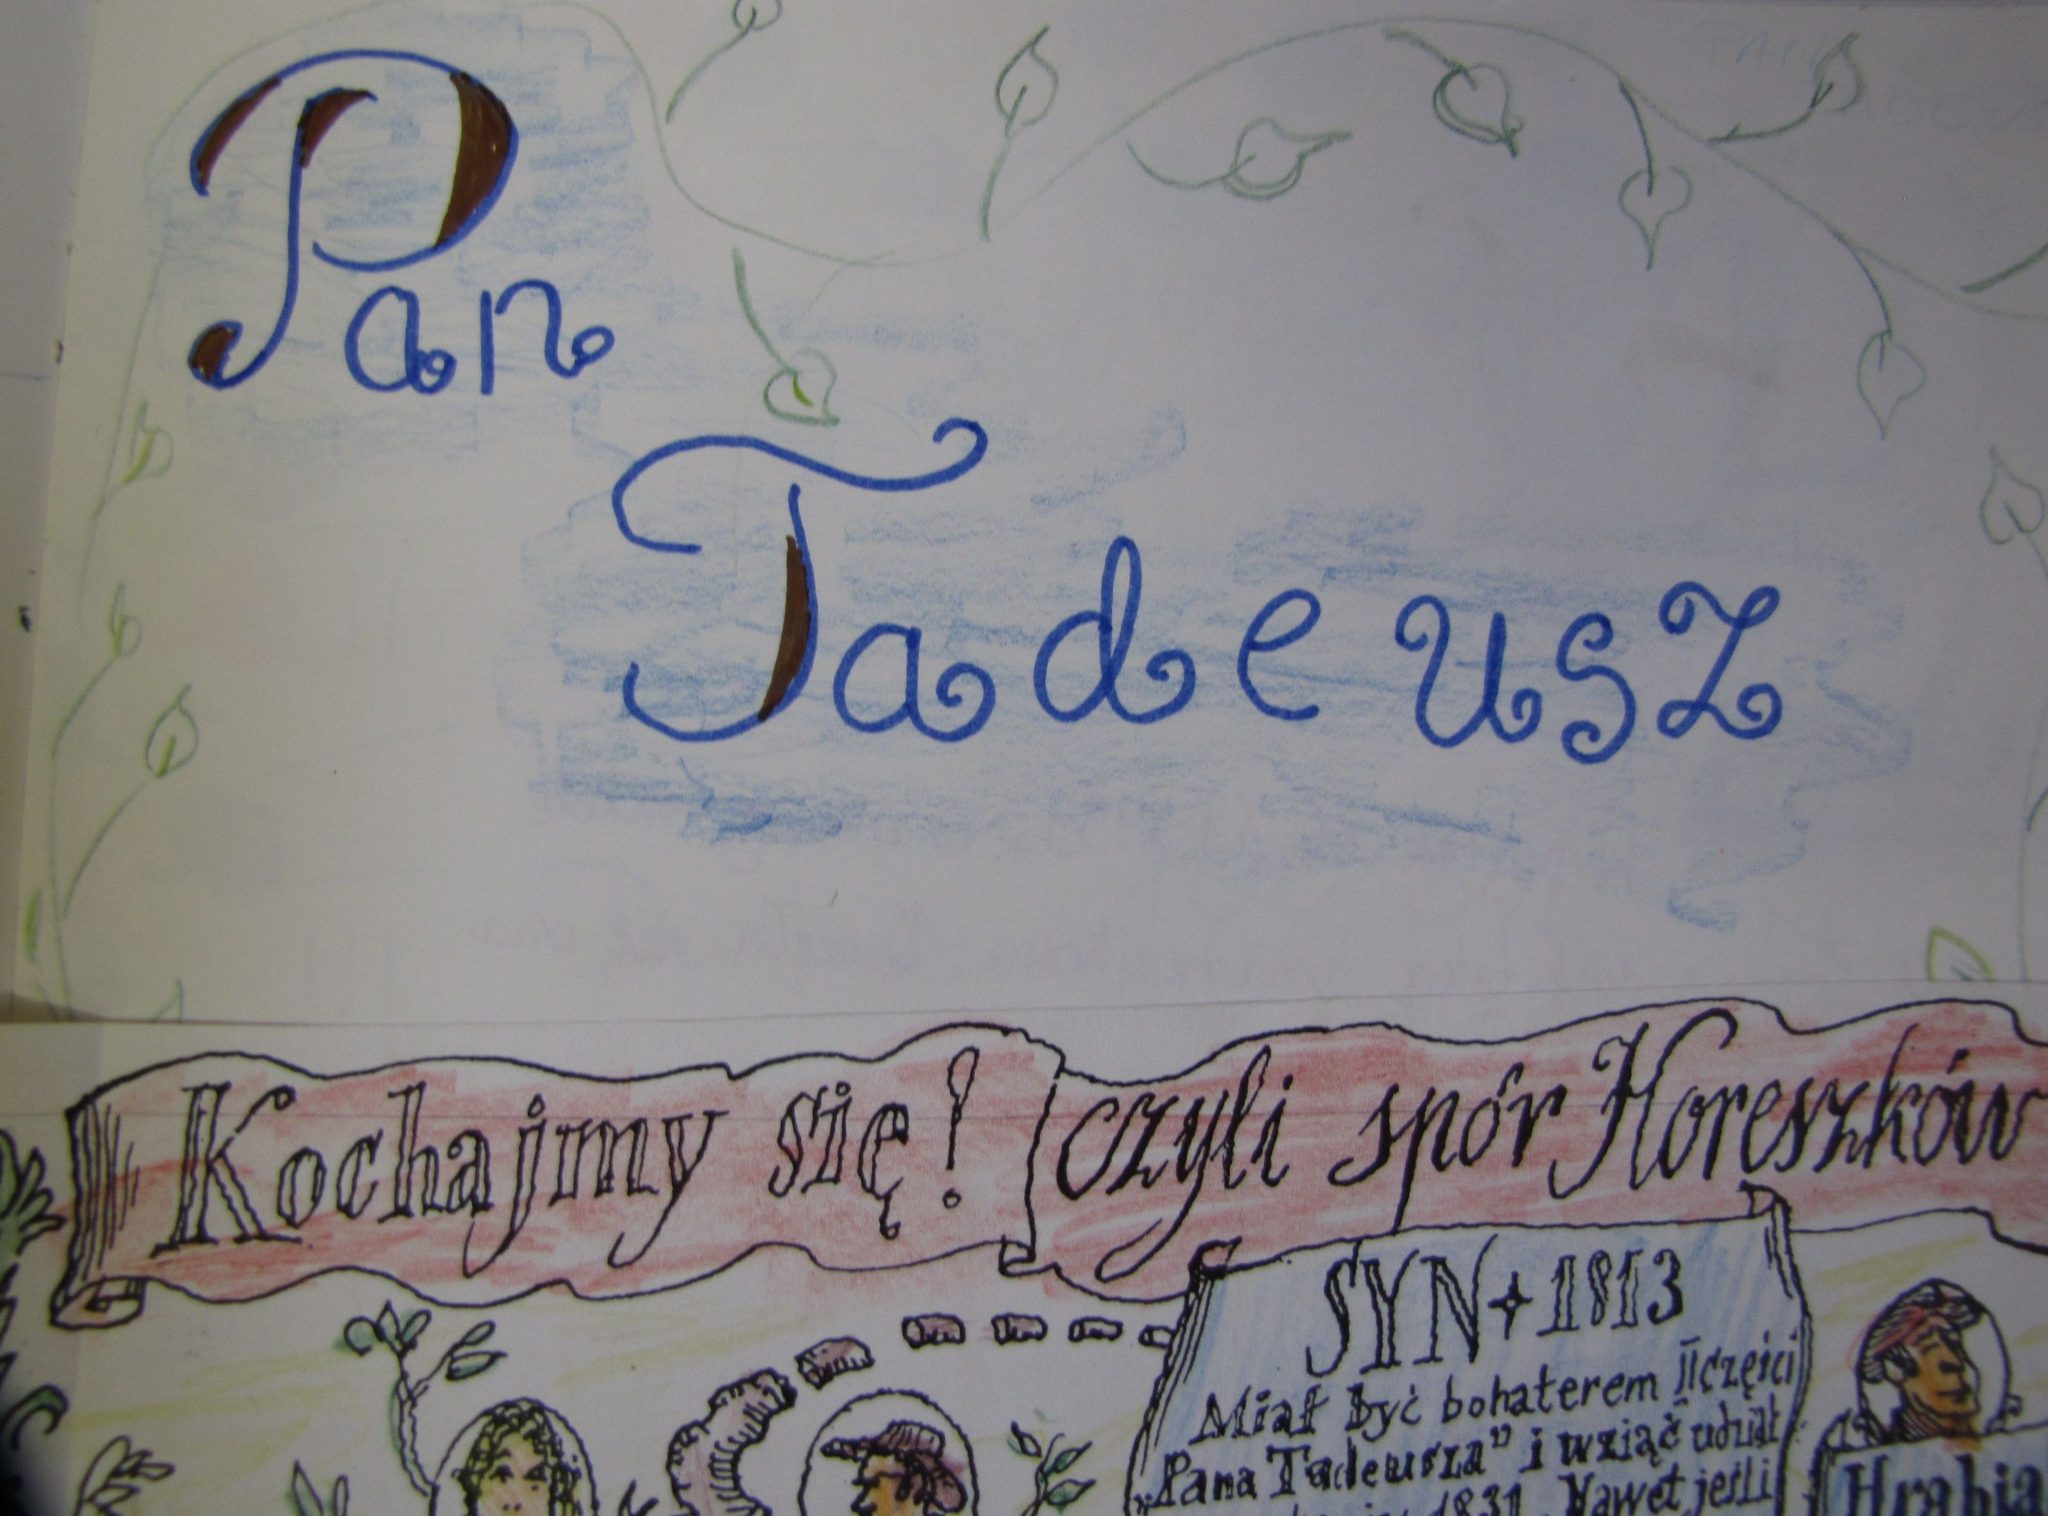 Pan
Tadeusz
Kochajmy się! czyli spór Horeszków
SYN + 1813
Miał być bohaterem II części
"Pana Tadeusza" i wziąć udział
1831. Nawet jeśli
Hrabia